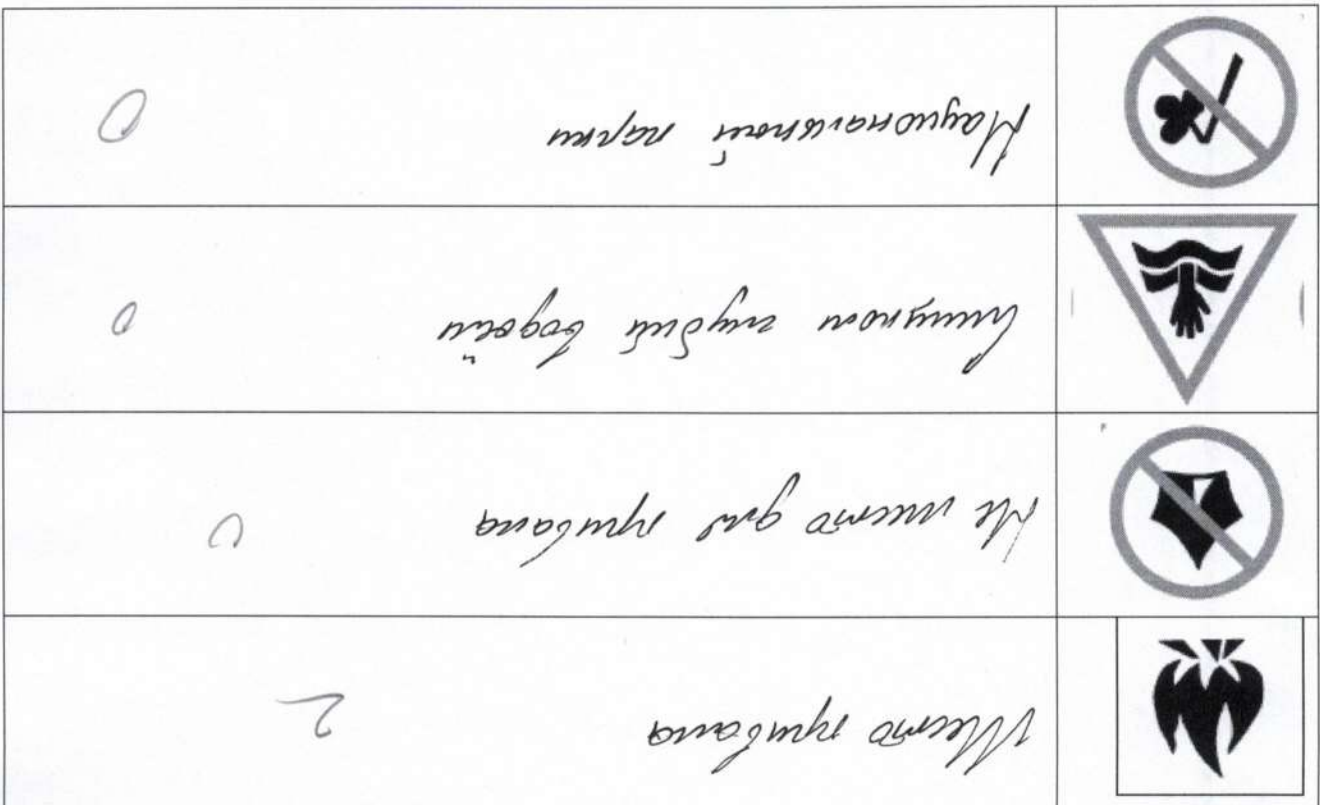 Место привала 2
Не место для привала 0
Слишком водоём 0
Национальной парки 0